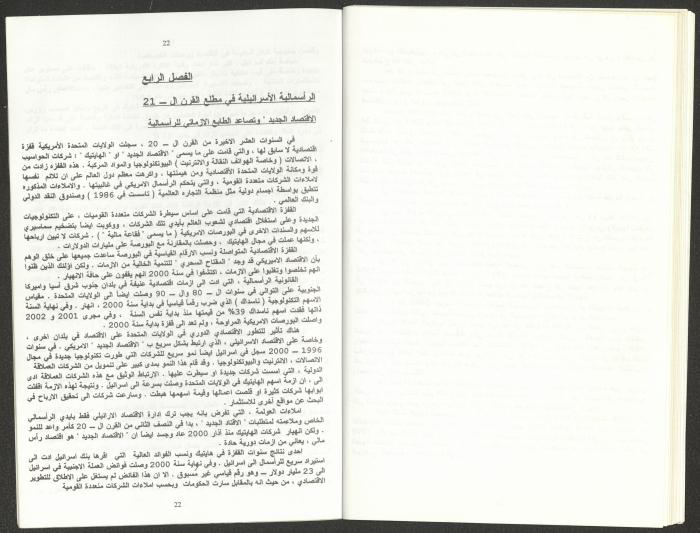 22
الفصل الرابع
الرأسمالية الأسرائيلية في مطلع القرن ال ــ 21
الاقتصاد الجديد " وتصاعد الطابع الازماتي للرأسمالية
في السنوات العشر الاخيرة من القرن ال ــ 20 ، سجلت الولايات المتحدة الأمريكية قفزة
اقتصادية لا سابق لها ، والتي قامت على ما يسمى " الاقتصاد الجديد " او " الهايتيك " ؛ شركات الحواسيب
، الاتصالات ( وخاصة الهواتف النقالة والانترنيت ) البيوتكنولوجيا والمواد المركبة . هذه القفزه زادت من
قوة ومكانة الولايات المتحدة الاقتصادية ومن هيمنتها ، واكرهت معظم دول العالم على ان تلائم نفسها
لاملاءات الشركات متعددة القومية ، والتي يتحكم الرأسمال الامريكي في غالبيتها . والاملاءات المذكوره
تتطبق بواسطة اجسام دولية مثل منظمة التجاره العالمية ( تاسست في 1986 ) وصندوق النقد الدولي
والبنك العالمي .
القفزة الاقتصادية التي قامت على اساس سيطرة الشركات متعددة القوميات ، على التكنولوجيات
الجديدة وعلى استغلال اقتصادي لشعوب العالم بأيدي تلك الشركات ، ووكبت ايضاً بتضخيم سماسيري
للاسهم والسندات الاخرى في البورصات الامريكية ( ما يسمى " فقاعة مالية " ) . شركات لا تبين ارباحها
، ولكنها عملت في مجال الهايتيك ، وحصلت بالمقارنة مع البورصة على مليارات الدولارات .
القفزة الاقتصادية المتواصلة ونسب الارقام القياسية في البورصة ساعدت جميعها على خلق الوهم
بأن الاقتصاد الاميركي قد وجد " المفتاح السحري " للتنمية الخالية من الازمات . ولكن اولئك الذين ظنوا
انهم تخلصوا وتغلبوا على الازمات ، اكتشفوا في سنة 2000 انهم يقفون على حافة الانهيار .
القانونية الرأسمالية ، التي ادت الى ازمات اقتصادية عنيفة في بلدان جنوب شرق آسيا واميركا
الجنوبية على التوالي في سنوات ال ــ 80 وال ــ 90 وصلت ايضاً الى الولايات المتحدة . مقياس
الاسهم التكنولوجية ( ناسداك ) الذي ضرب رقماً قياسياً في بداية سنة 2000 ، انهار . وفي نهاية السنة
ذاتها فقدت اسهم ناسداك 39% من قيمتها منذ بداية نفس السنة ، وفي مجرى 2001 و 2002
واصلت البورصات الامريكية المراوحة ، ولم تعد الى قفزة بداية سنة 2000 .
هناك تأثير للتطور الاقتصادي الدوري في الولايات المتحدة على الاقتصاد في بلدان اخرى ،
وخاصة على الاقتصاد الاسرائيلي ، الذي ارتبط بشكل سريع ب " الاقتصاد الجديد " الامريكي . في سنوات
1996 ــ 2000 سجل في اسرائيل ايضاً نمو سريع للشركات التي طورت تكنولوجيا جديدة في مجال
الاتصالات ، الانترنيت والبيوتكنولوجيا . وقد قام هذا النمو بمدى كبير على تمويل من الشركات العملاقة
الدولية ، التي اسست شركات جديدة او سيطرت عليها . الارتباط الوثيق مع هذه الشركات العملاقة ادى
الى ، ان ازمة اسهم الهايتيك في الولايات المتحدة وصلت بسرعة الى اسرائيل . ونتيجة لهذه الازمة اقفلت
ابوابها شركات كثيرة او قلصت اعمالها وقيمة اسهمها هبطت . وسارعت شركات الى تحقيق الارباح في
البحث عن مواقع أخرى للاستثمار .
املاءات العولمة ، التي تفرض بانه يجب ترك ادارة الاقتصاد الارائيلي فقط بايدي الرأسمالي
الخاص وملاءمته لمتطلبات " الاقتاد الجديد " ، بدا في النصف الثاني من القرن ال ــ 20 كأمر واعد للنمو
. ولكن انهيار شركات الهايتيك منذ آذار 2000 عاد وجسد ايضاً ان " الاقتصاد الجديد " هو اقتصاد رأس
مالي ، يعاني من ازمات دورية حادة .
احدى نتائج سنوات القفزة في هايتيك ونسب الفوائد العالية التي اقرها بنك اسرائيل ادت الى
استيراد سريع للرأسمال الى اسرائيل . وفي نهاية سنة 2000 وصلت فوائض العملة الاجنبية في اسرائيل
الى 23 مليار دولار ــ وهو رقم قياسي غير مسبوق . الا ان هذا الفائض لم يستغل على الاطلاق للتطوير
الاقتصادي ، من حيث انه بالمقابل سارت الحكومات وبحسب املاءات الشركات متعددة القومية
22